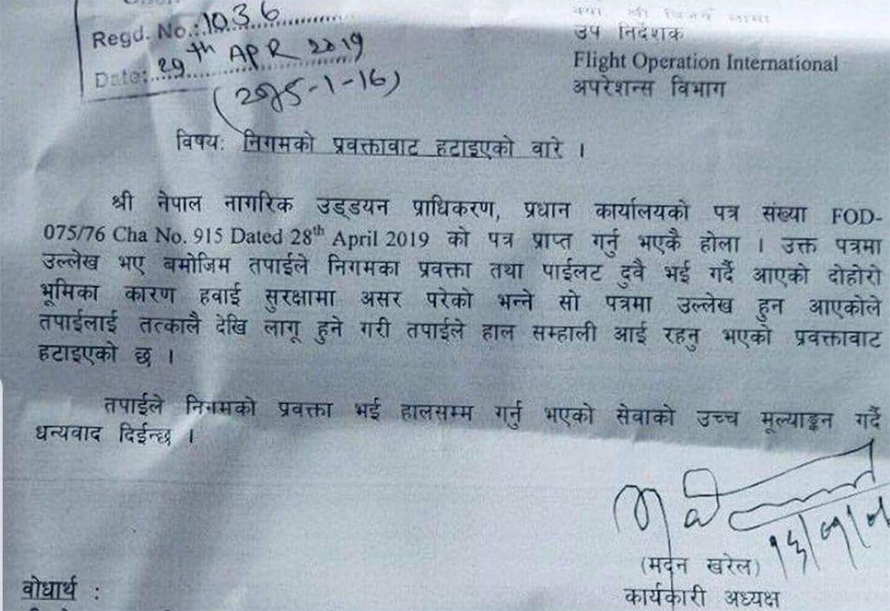 Regd. No.: 1036
Date: 29th APR 2019
(2075-1-16)
उप निर्देशक
Flight Operation International
अपरेशन्स विभाग
विषय: निगमको प्रवक्तावाट हटाइएको वारे ।
श्री नेपाल नागरिक उड्डयन प्राधिकरण, प्रधान कार्यालयको पत्र संख्या FOD-
075/76 Cha No. 915 Dated 28th April 2019 को पत्र प्राप्त गर्नु भएकै होला । उक्त पत्रमा
उल्लेख भए बमोजिम तपाईले निगमका प्रवक्ता तथा पाईलट दुवै भई गर्दै आएको दोहोरो
भूमिका कारण हवाई सुरक्षामा असर परेको भन्ने सो पत्रमा उल्लेख हुन आएकोले
तपाईलाई तत्कालै देखि लागू हुने गरी तपाईले हाल सम्हाली आई रहनु भएको प्रवक्तावाट
हटाइएको छ ।
तपाईले निगमको प्रवक्ता भई हालसम्म गर्नु भएको सेवाको उच्च मूल्याङ्कन गर्दै
धन्यवाद दिईन्छ ।
(मदन खरेल)
कार्यकारी अध्यक्ष
वोधार्थ :